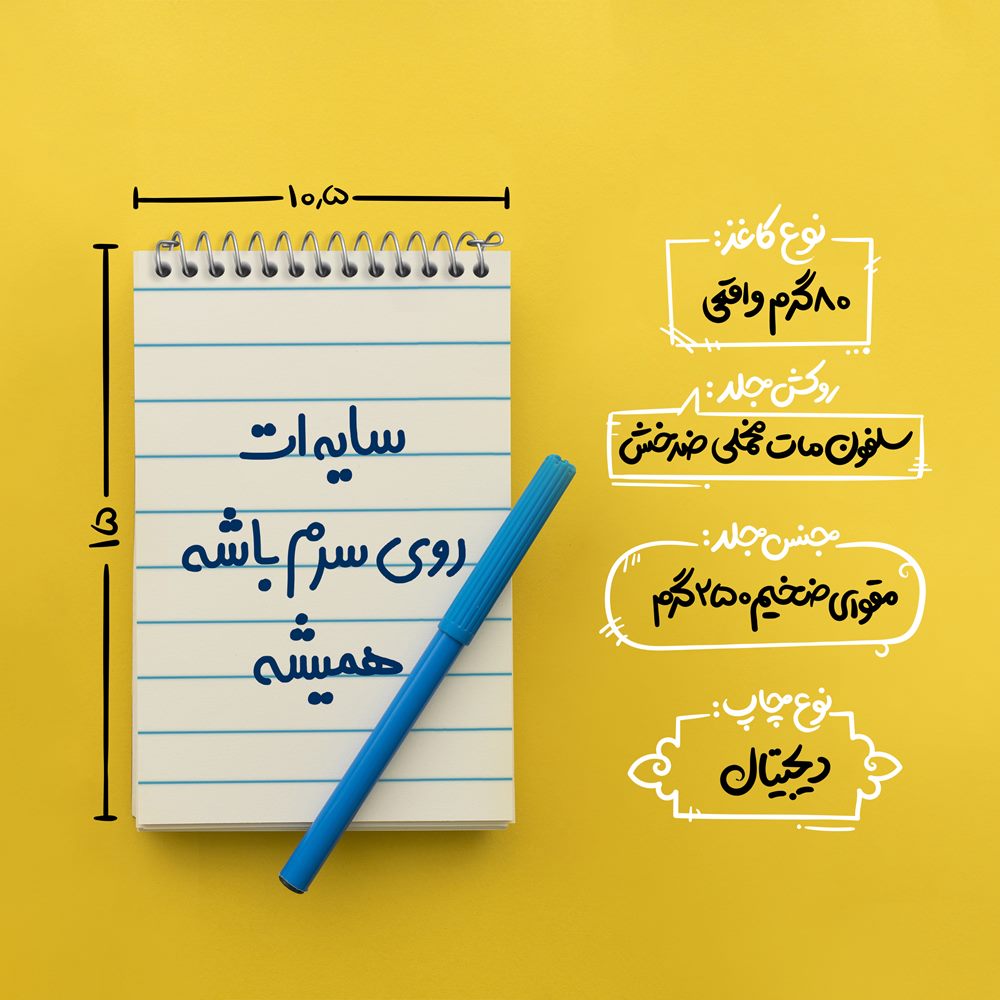 ۱۰٫۵
۱۵
سایه‌ات
روی سرم باشه
همیشه
نوع کاغذ:
۸۰گرم واقعی
روکش جلد:
سلفون مات مخملی ضدخش
جنس جلد:
مقوای ضخیم ۲۵۰گرم
نوع چاپ:
دیجیتال